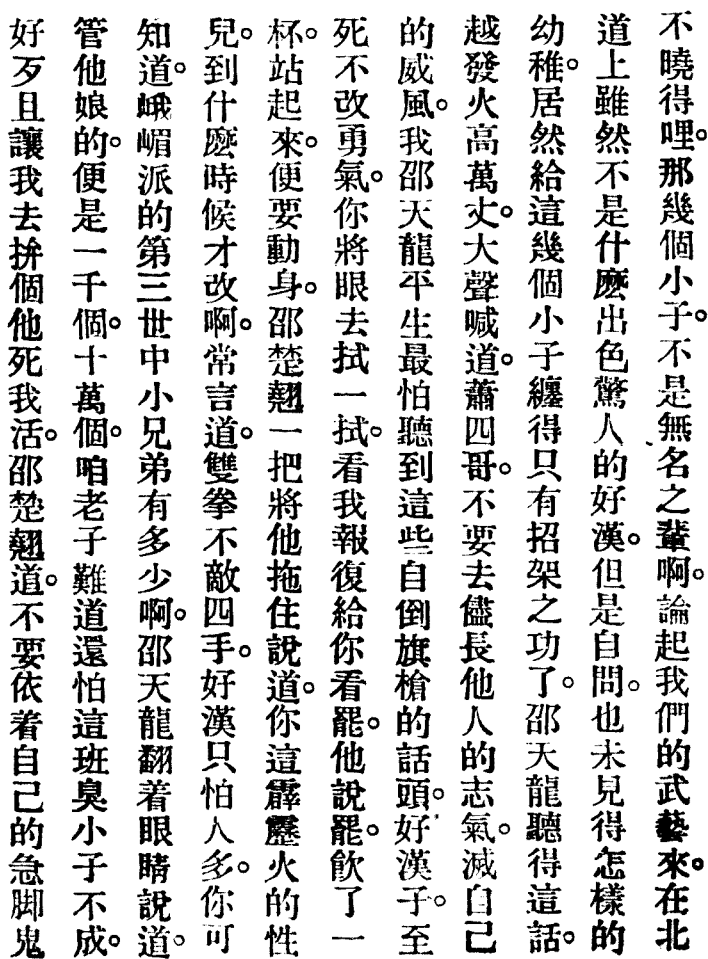 不曉得哩。那幾個小子。不是無名之輩啊。論起我們的武藝來。在北
道上雖然不是什麽出色驚人的好漢。但是自問。也未見得怎樣的
幼稚。居然給這幾個小子纏得只有招架之功了。邵天龍聽得這話。
越發火高萬丈。大聲喊道。蕭四哥。不要去儘長他人的志氣。滅自己
的威風。我邵天龍平生最怕聽到這些自倒旗槍的話頭。好漢子。至
死不改勇氣。你將眼去拭一拭。看我報復給你看罷。他說罷。飲了一
杯。站起來。便要動身。邵楚翹一把將他拖住說道。你這霹靂火的性
兒。到什麽時候才改啊。常言道。雙拳不敵四手。好漢只怕人多。你可
知道。峨嵋派的第三世中小兄弟有多少啊。邵天龍翻着眼睛說道。
管他娘的。便是一千個。十萬個。咱老子難道還怕這班臭小子不成。
好歹且讓我去拚個他死我活。邵楚翹道。不要依着自己的急脚鬼